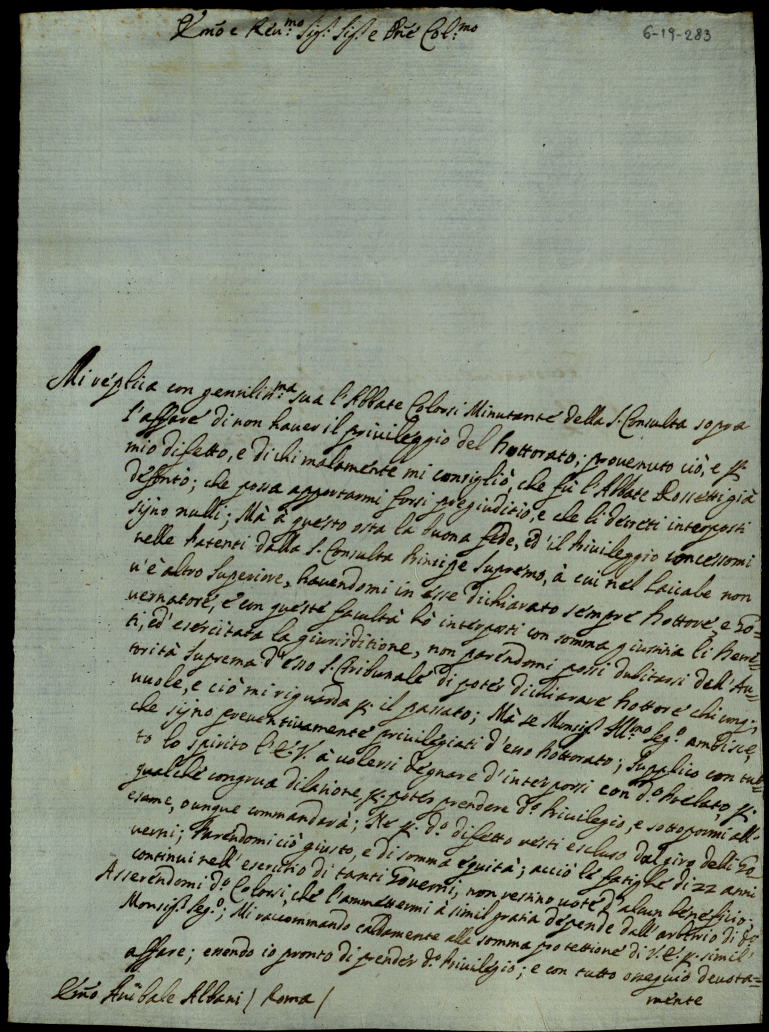 Em̃o e Reu:mo Sig.r Sig.r e Prñe Col:mo
6-19-283
Mi replica con gentiliss:ma sua l'Abbate Colorsi Minutante della S. Consulta sopra
l'affare di non hauer il priuileggio del Dottorato; prouenuto ciò, e p.
mio difetto, e di chi malamente mi consigliò, che fù l'Abbate Rossetti già
defonto; che possa apportarmi forsi pregiuditio, e che li decreti interposti
sijno nulli; Mà à questo osta la buona fede, ed' il Priuileggio concessomi
nelle Patenti dalla S. Consulta Prencipe Supremo, à cui nel Laicale non
u'è altro Superiore, hauendomi in esse dichiarato sempre Dottore, e Go=
uernatore, e con queste facultà hò interposti con somma giustitia li Decre=
ti, ed' esercitata la giurisditione, non parendomi possi dubitarsi dell'Au=
torità Suprema d'esso S. Tribunale di poter dichiarare Dottore chi
uuole, e ciò mi riguarda p. il passato; Mà se Monsig.r Ill:mo Seg.o ambisce,
che sijno preuentiuamente priuilegiati d'esso Dottorato; Supplico con tut=
to lo spirito l'E. V. à uolersi degnare d'interporsi con d.o Prelato p.
qualche congrua dilatione, p. poter prendere d.o Priuilegio, e sottopormi all'
esame, ounque commandarà; Ne p. d.o difetto resti escluso dal giro delli Go=
uerni; Parendomi ciò giusto, e di somma equità; acciò le fatighe di 22 anni
continui nell'esercitio di tanti Gouerni, non restino uote d'alcun beneficio.
Asserendomi d.o Colorsi, che l'ammettermi à simil gratia depende dall'arbitrio di d.o
Monsig.r Seg.o; Mi raccommando caldamente alla somma protettione di V. E. p. simil'
affare; essendo io pronto di prender d.o Priuilegio; e con tutto ossequio deuota=
mente
Em̃o Anibale Albani / Roma /